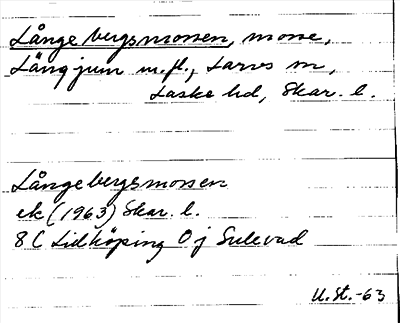 Långebergsmossen, mosse,
Längjum m.fl., Larvs m,
Laske hd, Skar. l.
Långebergsmossen
ek (1963) Skar. l.
8C Lidköping 0j Sulevad
U.St.-63